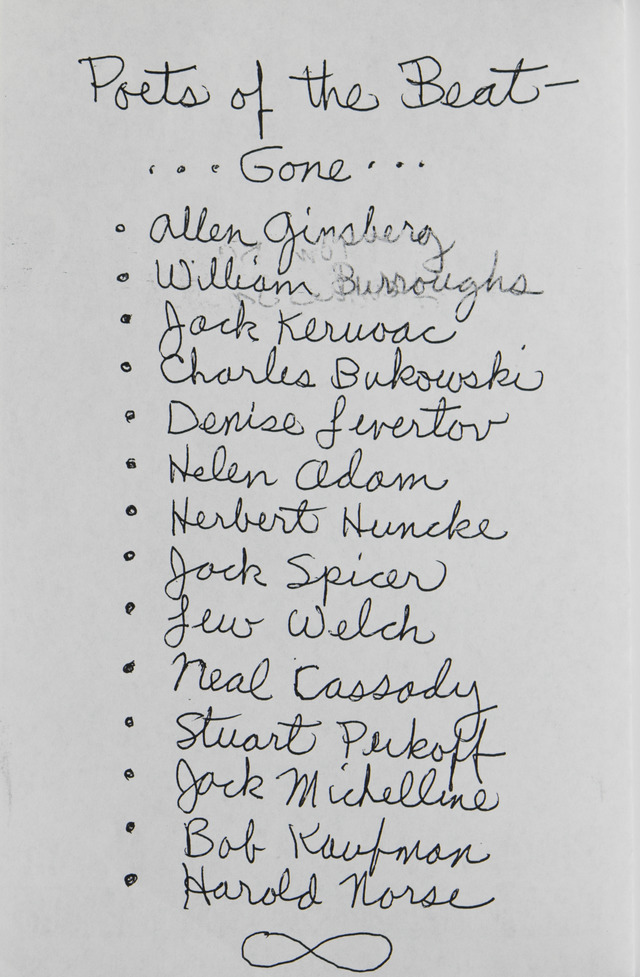 Poets of the Beat—
... Gone ...
• Allen Ginsberg
• William Burroughs
• Jack Keruoac
• Charles Bukowski
• Denise Levertov
• Helen Adam
• Herbert Huncke
• Jack Spicer
• Lew Welch
• Neal Cassady
• Stuart Perkoff
• Jack Michelline
• Bob Kaufman
• Harold Norse